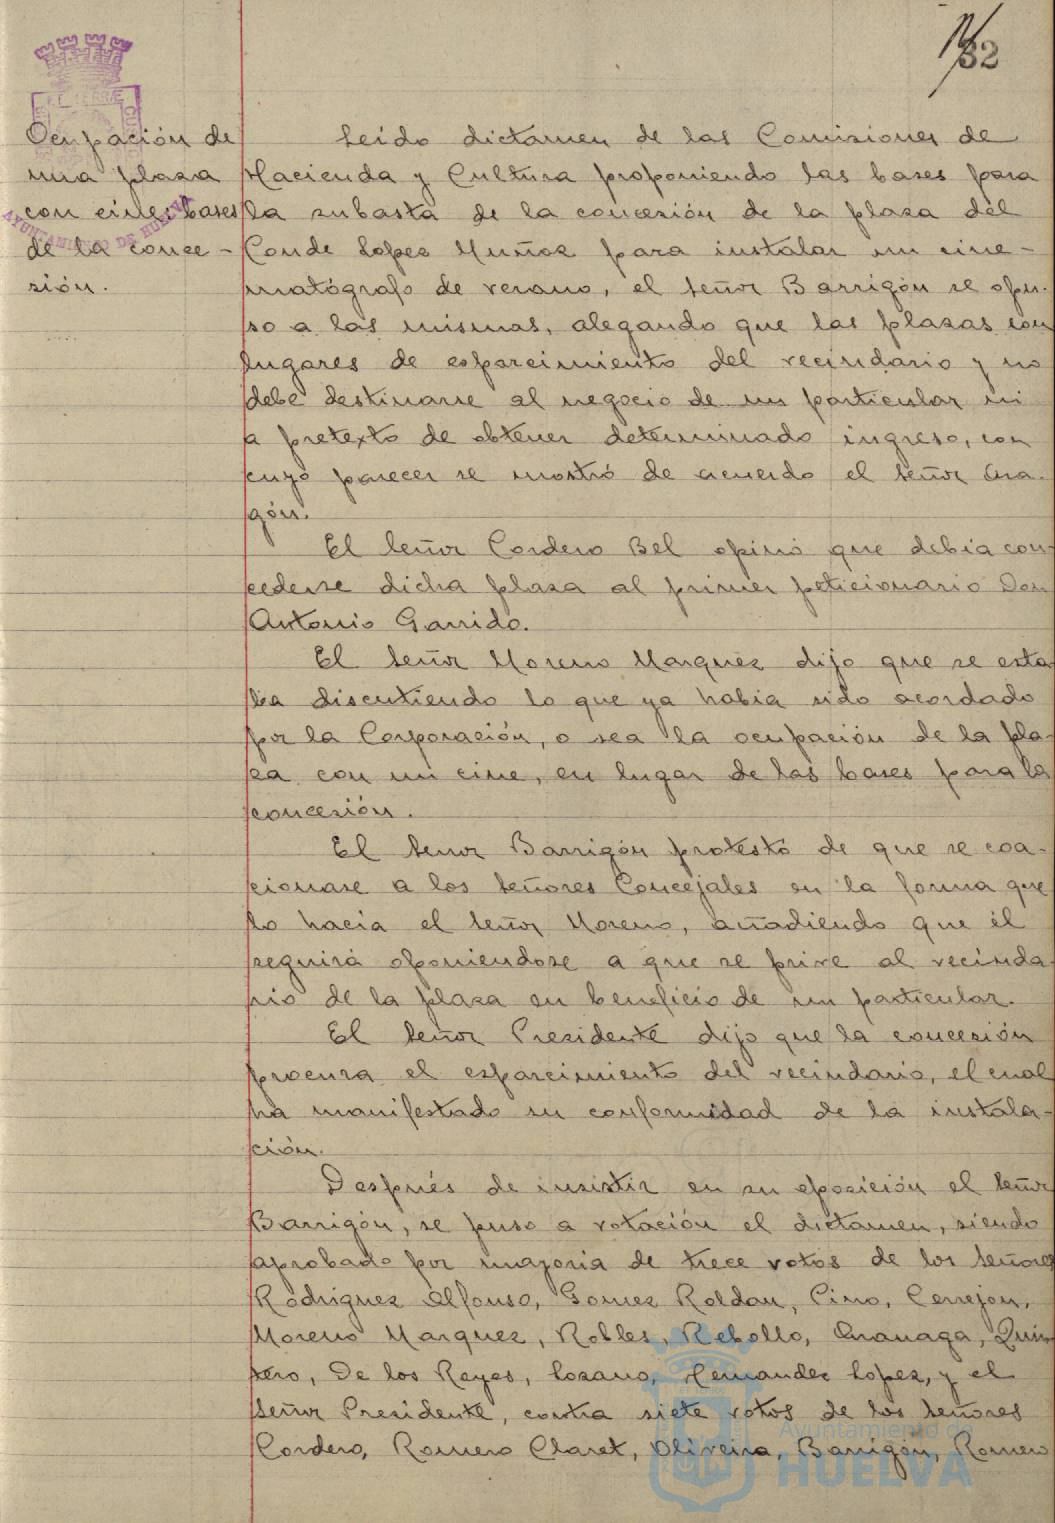 132
Ocupación de
una plaza
con cine: bases
de la conce-
sión.
Leido dictamen de las Comisiones de
Hacienda y Cultura proponiendo las bases para
la subasta de la concesión de la plaza del
Conde Lopez Muñoz para instalar un cine-
matógrafo de verano, el señor Barrigón se opu-
so a las mismas, alegando que las plazas son
lugares de esparcimiento del vecindario y no
debe destinarse al negocio de un particular ni
a pretexto de obtener determinado ingreso, con
cuyo parecer se mostró de acuerdo el señor Ara-
gón.
El señor Cordero Bel opinó que debía con-
cederse dicha plaza al primer peticionario Don
Antonio Garrido.
El señor Moreno Marquez dijo que se esta
ba discutiendo lo que ya habia sido acordado
por la Corporación, o sea la ocupación de la pla-
za con un cine, en lugar de las bases para la
concesión.
El señor Barrigón protestó de que se coa-
cionase a los señores Concejales en la forma que
lo hacia el señor Moreno, añadiendo que él
seguirá oponiendose a que se prive al vecinda
rio de la plaza en beneficio de un particular.
El señor Presidente dijo que la concesión
procura el esparcimiento del vecindario, el cual
ha manifestado su conformidad de la instala-
ción.
Después de insistir en su oposición el señor
Barrigón, se puso a votación el dictamen, siendo
aprobado por mayoria de trece votos de los señores
Rodriguez Alfonso, Gomez Roldan, Pino, Cerrejon,
Moreno Marquez, Robles, Rebollo, Aranaga, Quin
tero, De los Reyes, Lozano, Hernandez Lopez, y el
señor Presidente, contra siete votos de los señores
Cordero, Romero Claret, Oliveira, Barrigón, Romero
AYUNTAMIENTO DE HUELVA
Ayuntamiento de
HUELVA